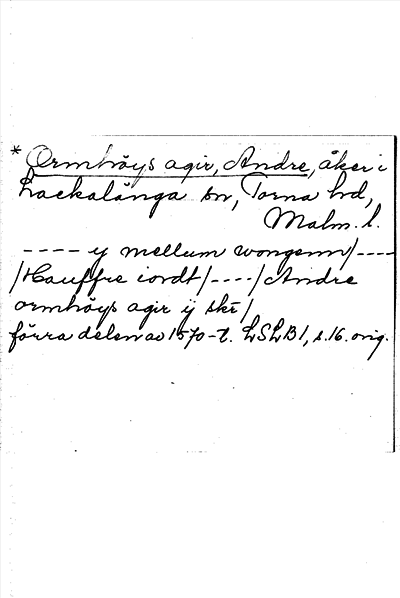 * Ormhöys agir, Andre, åker i
Lackalänga sn, Torna hd,
Malm. l.
---- y mellum wongenn/----
/Hauffre iordt/----/Andre
ormhöys agir ij ske/
förra delen av 1570-t. LSLB1, s.16. orig.